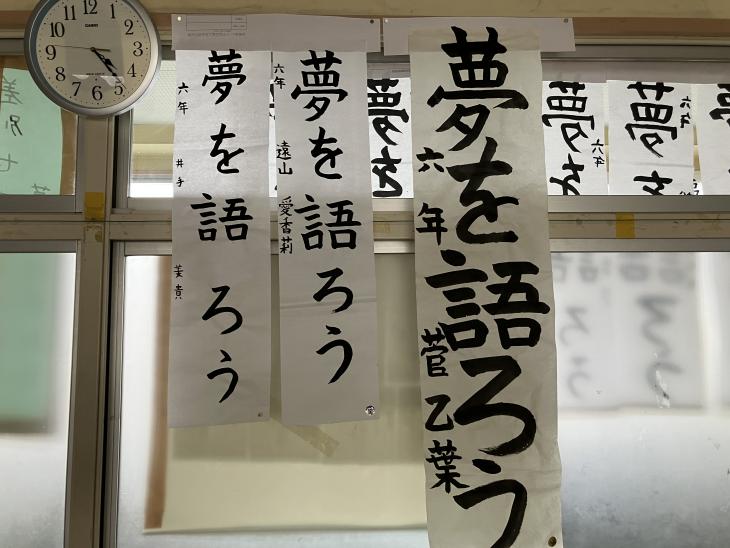 12
1
2
3
4
5
6
7
8
9
10
11
CASIO
夢を語ろう
六年 菅乙葉
夢を語ろう
六年 遠山 愛香莉
夢を語ろう
六年 井手
夢を
夢を
六年
夢を
六年
差別